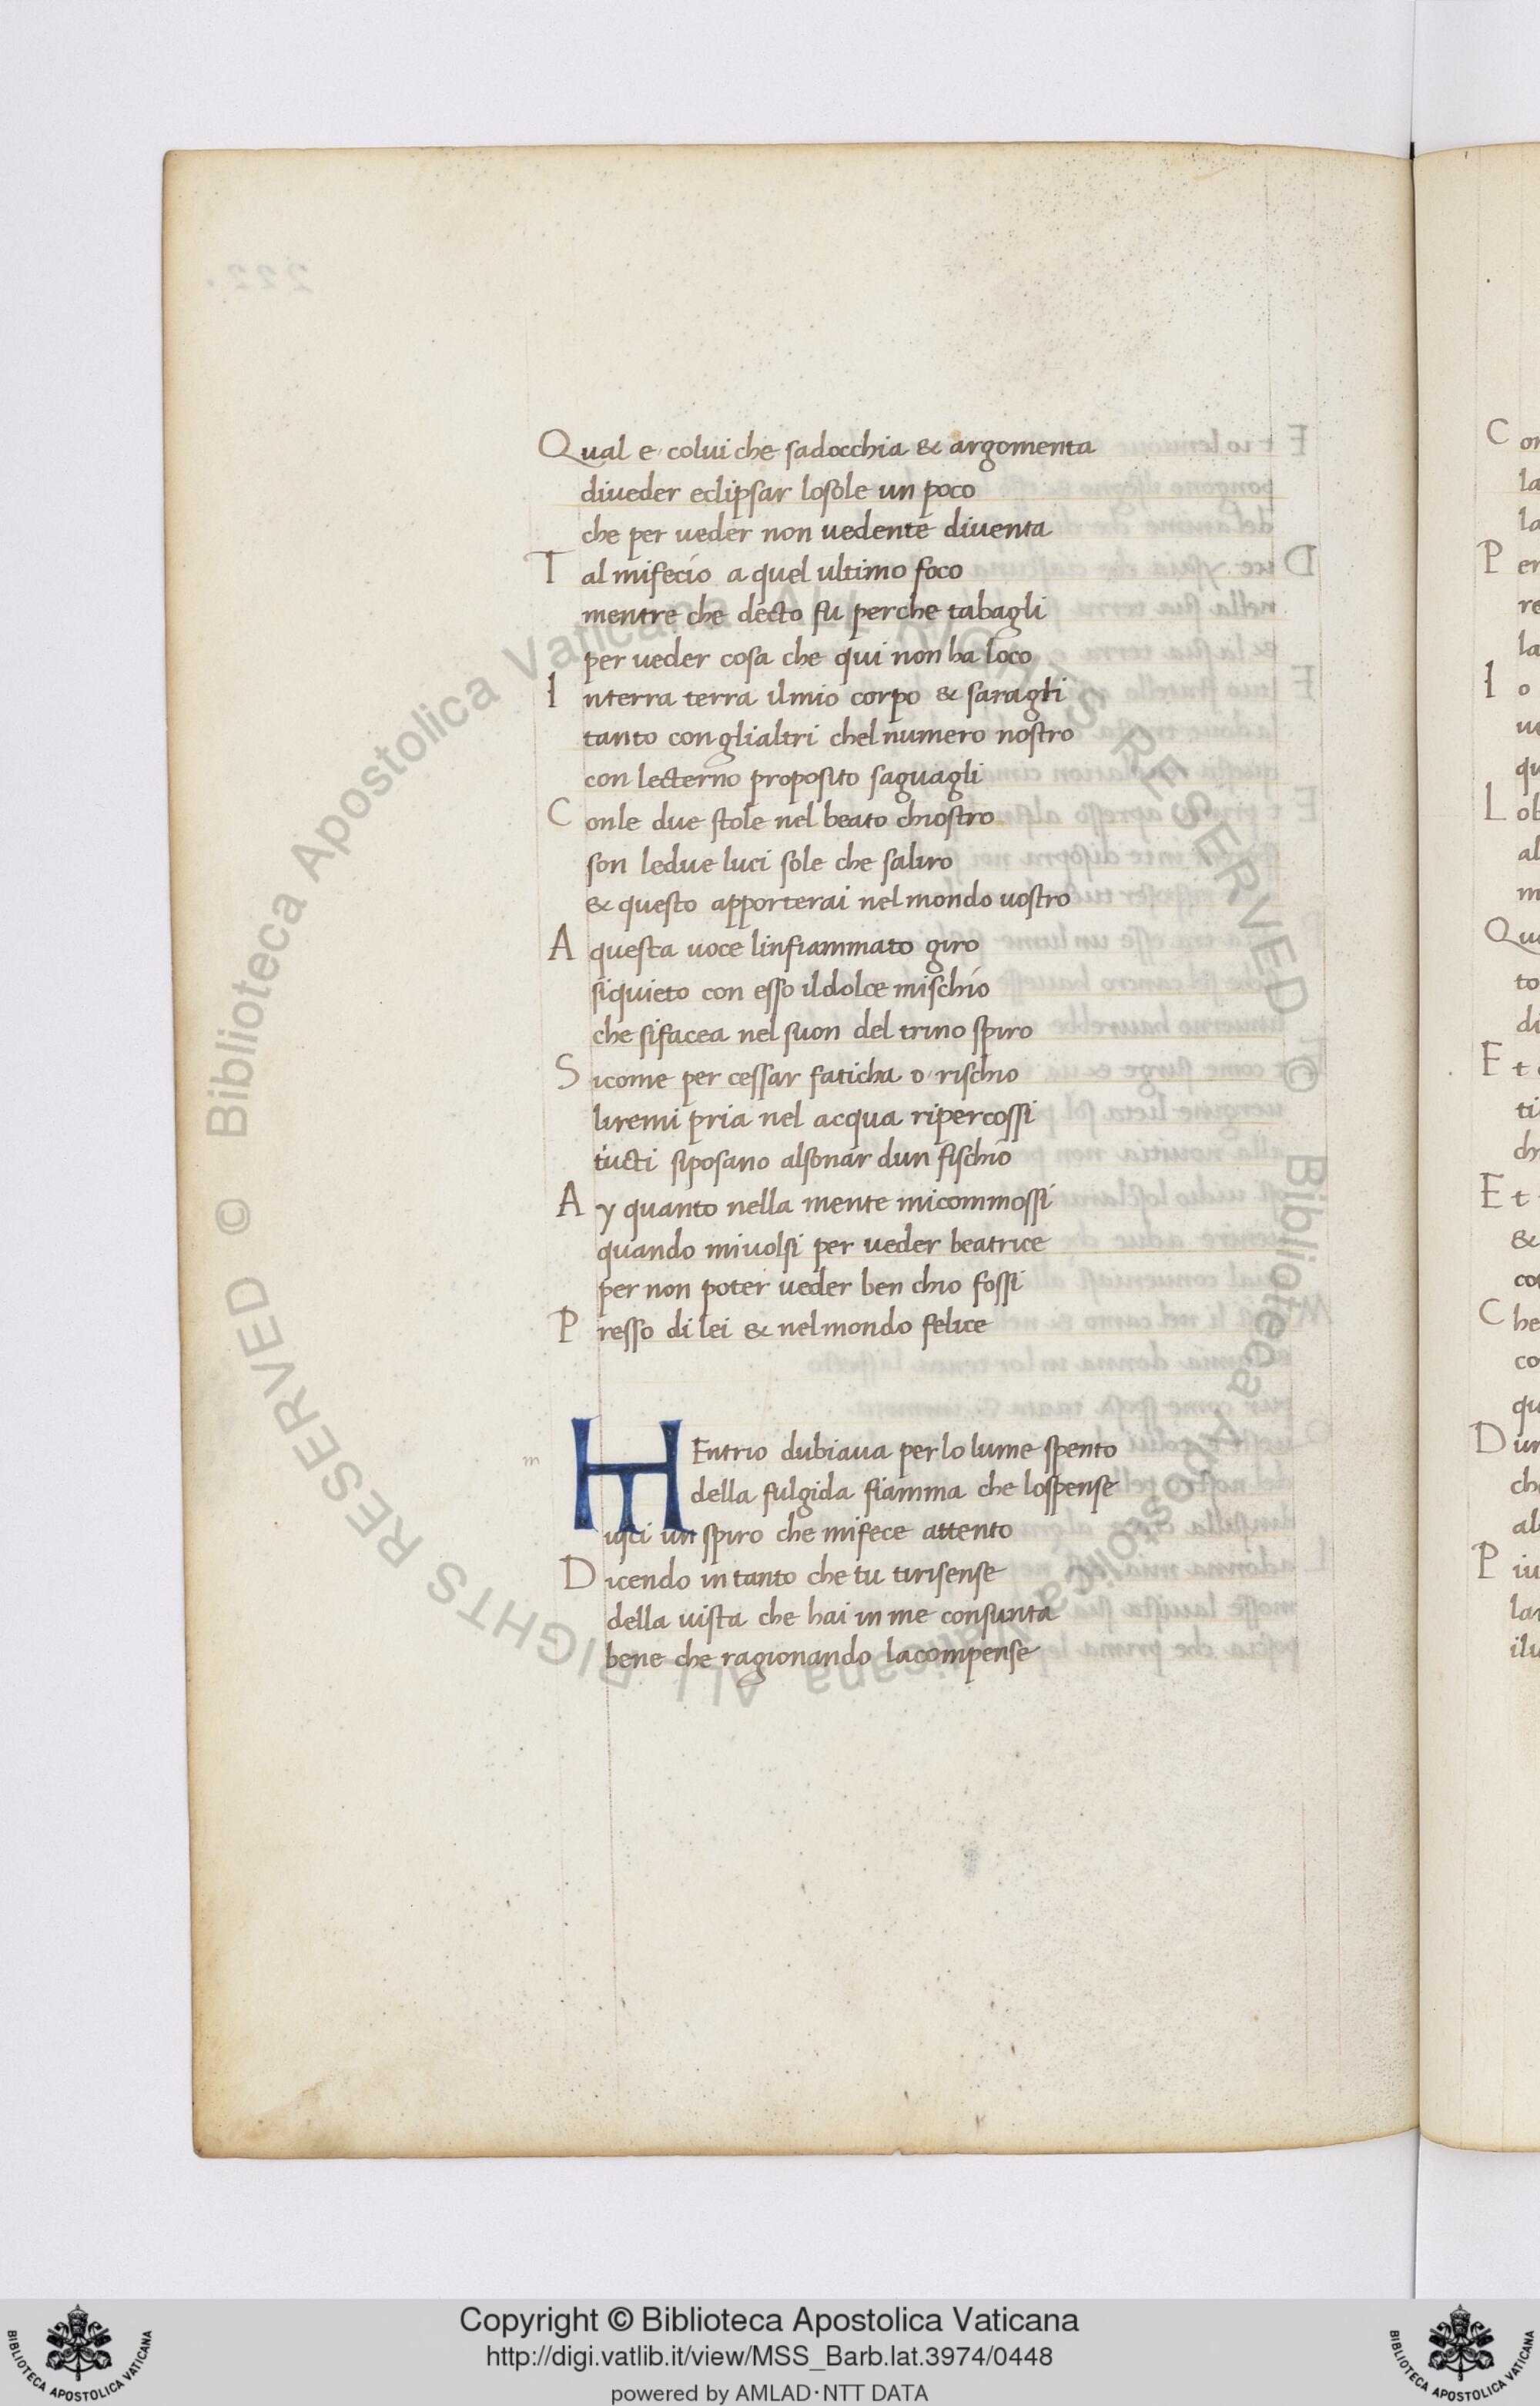 Qual e colui che sadocchia & argomenta
diveder eclipsar losole un poco
che per veder non vedente diventa
Tal mifecio a quel ultimo foco
mentre che decto fu perche tabagli
per veder cosa che qui non ha loco
Interra terra ilmio corpo & saragli
tanto conglialtri chel numero nostro
con lecterno proposito saguagli
Conle due stole nel beato chiostro
son ledue luci sole che saliro
& questo apporterai nelmondo vostro
A questa voce linfiammato giro
siquieto con esso ildolce mischio
che sifacea nel suon del trino spiro
Sicome per cessar faticha o rischio
liremi pria nel acqua ripercossi
tucti siposano alsonar dun fischio
Ay quanto nella mente micommossi
quando mivolsi per veder beatrice
per non poter veder ben chio fossi
Presso di lei & nelmondo felice
m
MEntrio dubiava perlo lume spento
della fulgida fiamma che lospense
usci un spiro che mifece attento
Dicendo intanto che tu tirisense
della vista che hai in me consunta
bene che ragionando lacompense
Copyright © Biblioteca Apostolica Vaticana
http://digi.vatlib.it/view/MSS_Barb.lat.3974/0448
powered by AMLAD·NTT DATA
BIBLIOTECA APOSTOLICA VATICANA
BIBLIOTECA APOSTOLICA VATICANA
© Biblioteca Apostolica Vaticana ALL RIGHTS RESERVED © Biblioteca Apostolica Vaticana ALL RIGHTS RESERVED